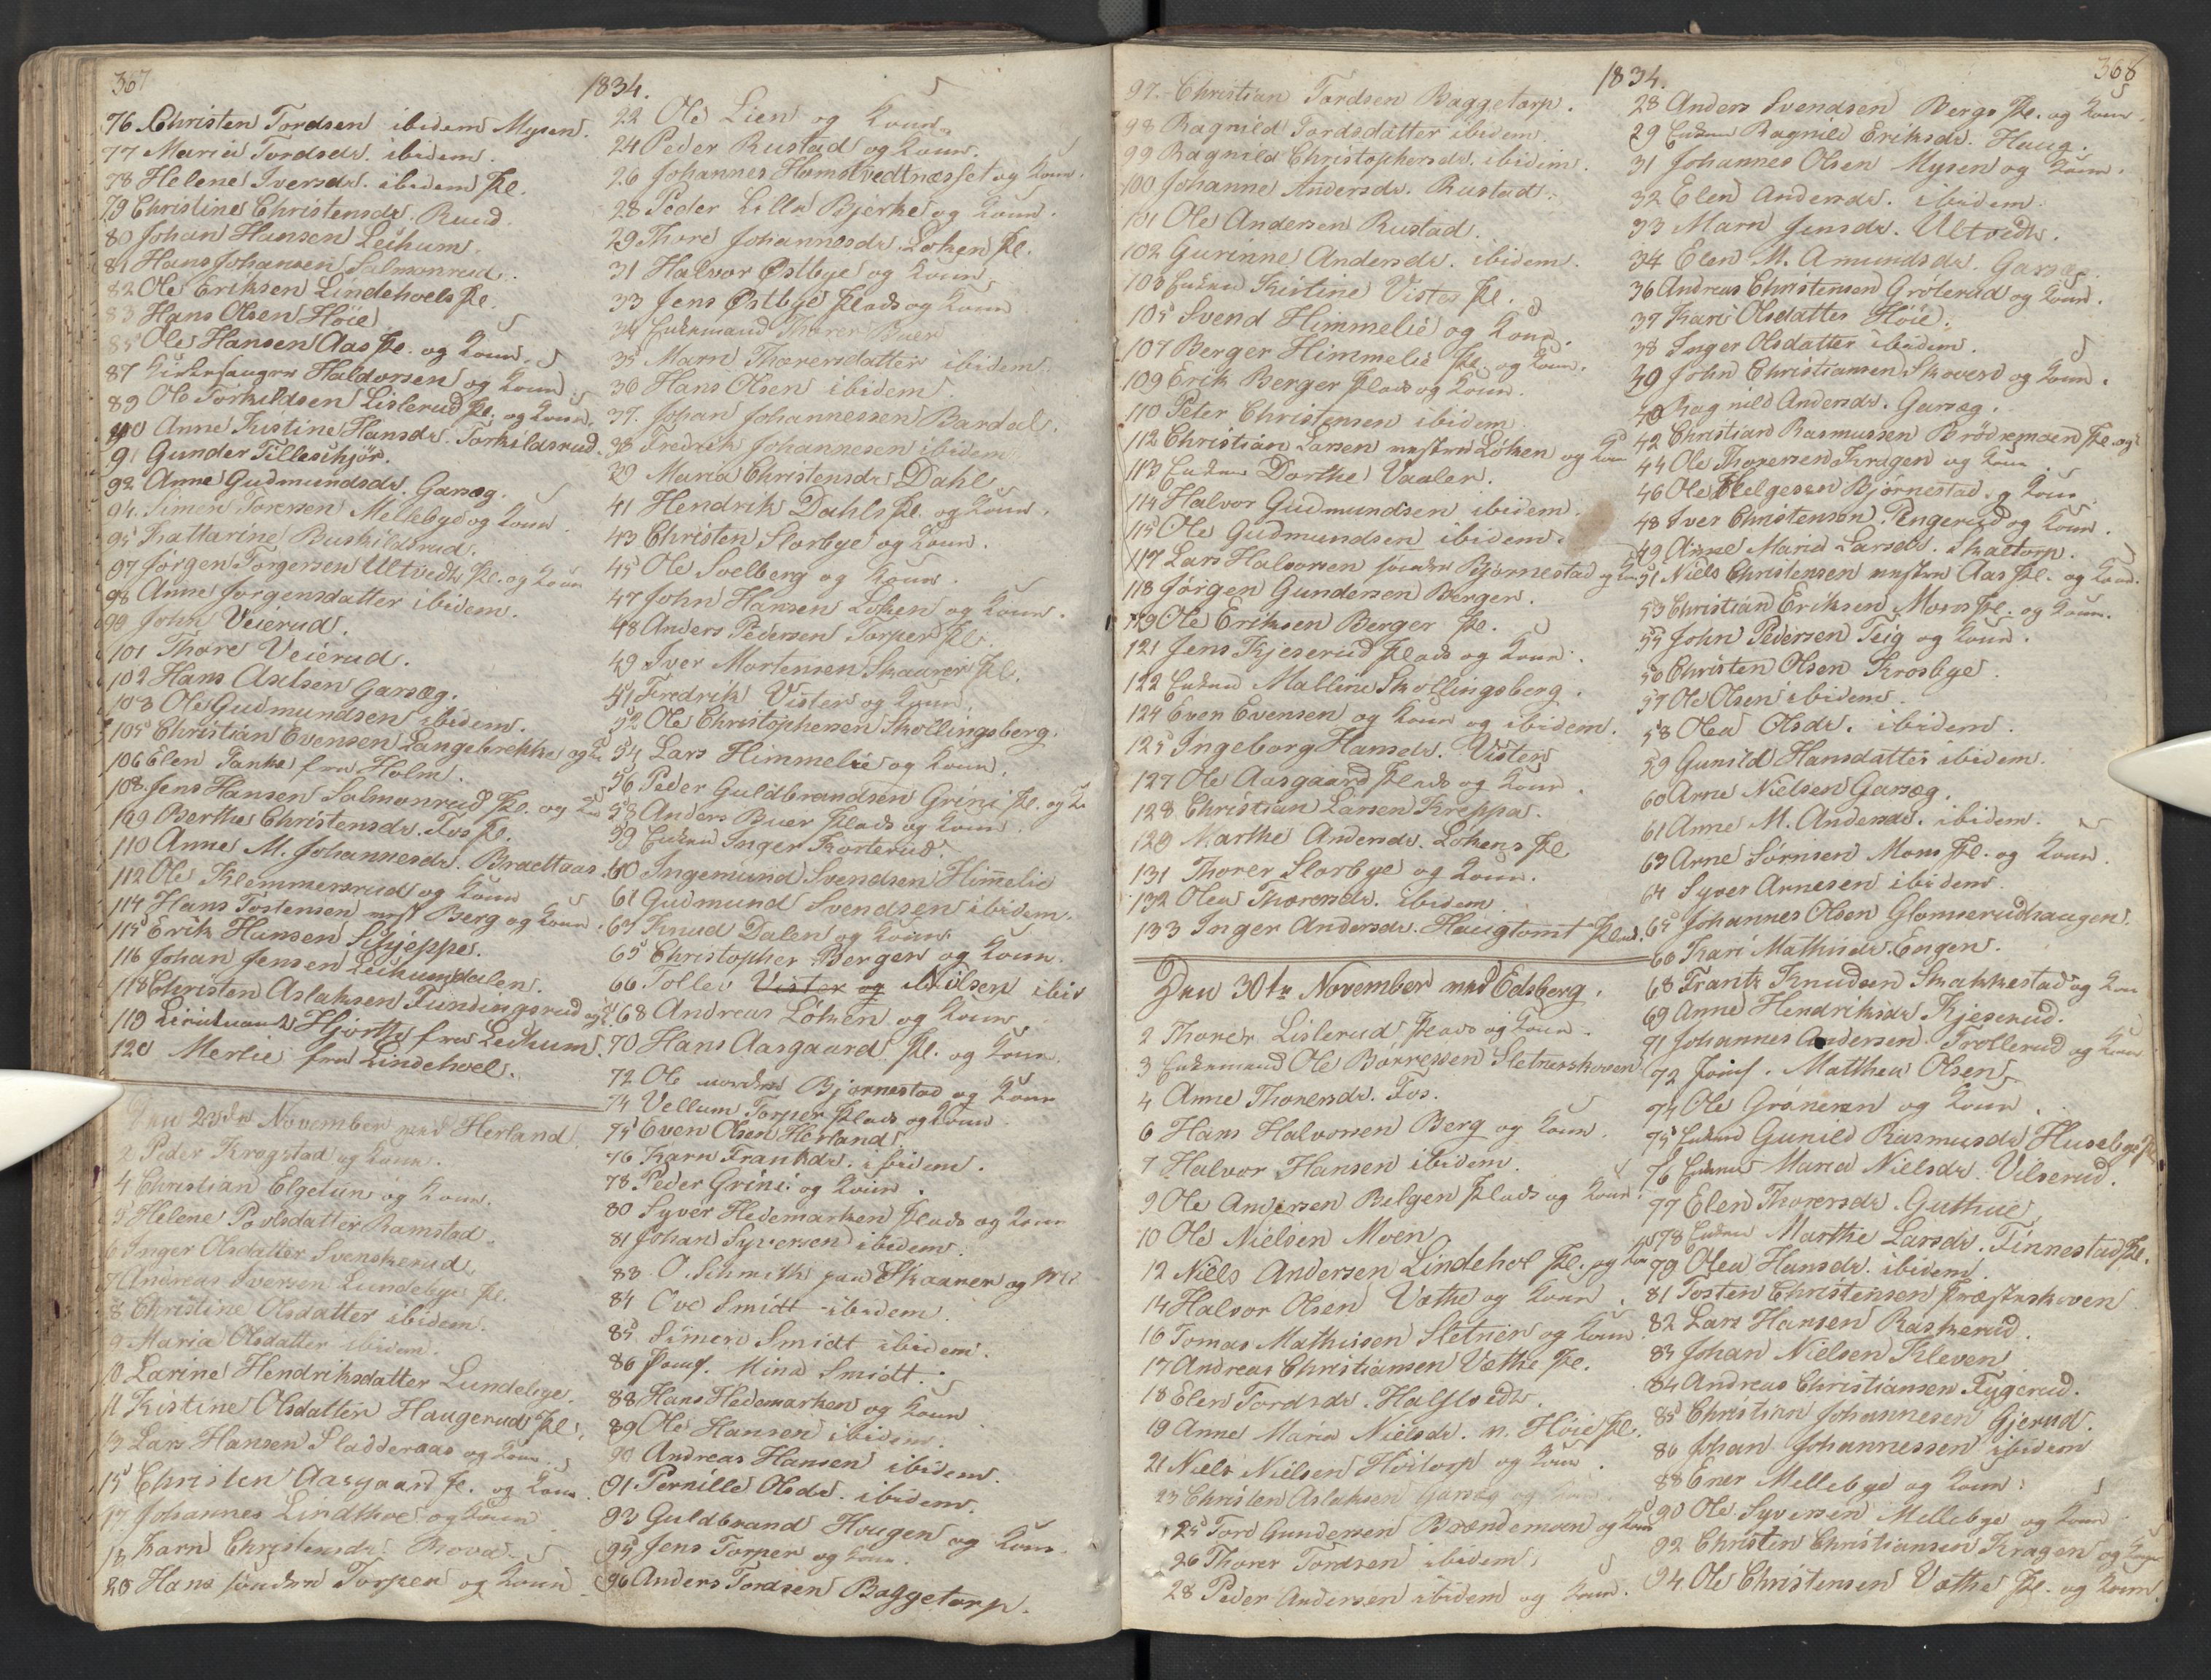 367
1834.
76 Christen Tordsen ibidem Mysen.
77 Maria Tordsdr. ibidem.
78 Helene Iversdr. ibidem Pl.
79 Christine Christensdr. Ruud.
80 Johan Hansen Leikum.
81 Hans Johansen Salmonrud.
82 Ole Eriksen Lindehoels Pl.
83 Hans Olsen Höie
85 Ole Hansen Aas Pl. og Kone.
87 Kirkesanger Haldorsen og Kone
89 Ole Torkildsen Lislerud Pl. og Kone.
90 Anne Kistine Hansdr. Torkildsrud.
91 Gunder Tilleskjör.
92 Anne Gudmundsdr. Garseg.
94. Simen Toresen Mellebye og Kone
95 Kattarine Buskildsrud.
97 Jörgen Torgersen Ultvedt Pl. og Kone
98 Anne Jörgensdatter ibidem.
99 John Veierud.
101 Thore Veierud.
102 Hans Axelsen Garseg.
103 Ole Gudmundsen ibidem.
105 Christian Evensen Langebrekke og K
106 Elen Tanke fra Holm.
108. Jens Hansen Salmonrud Pl. og K
109 Berthe Christensdr. Fos Pl.
110 Anne M. Johannesdr. Braettaas.
112 Ole Klemmersrud og Kone
114 Hans Tostensen Berg og Kone
115 Erik Hansen Skjeppe.
116 Johan Jensen Leikumdalen.
118 Christen Aslaksen Fundingsrud og K
119 Leieutnant Hjorth fra Leikum.
120 Merlie fra Lindehoel.
Den 23de November ved Herland
2 Peder Kragstad og Kone.
4 Christian Elgetun og Kone.
5 Helene Povlsdatter Ramstad.
6 Inger Olsdatter Svenskerud
7 Andreas Iversen Lundebye Pl.
8 Christine Olsdatter ibidem.
9 Maria Olsdatter ibidem.
10 Larine Hendriksdatter Lundebye
11 Kistine Olsdatter Haugerud Pl.
13 Lars Hansen Sladderaas og Kone
15 Christen Aasgaard Pl. og Kone
17 Johannes Lindthoe og Kone
18 Karn Christensdr. Rova
20 Hans söndre Torper og Kone
22 Ole Lien og Kone
24 Peder Rustad og Kone.
26 Johannes Homstvedtnæsset og Kone.
28 Peder Lille Bjerke og Kone.
29 Thore Johannesdr. Løken Pl.
31 Halvor Østbye og Kone
33 Jens Østbye Plads og Kone
34 Enkemand Thorer Buer
35 Marn Thorersdatter ibidem
36 Hans Olsen ibidem
37. Johan Johannessen Bardal.
38 Fredrik Johannesen ibidem
39 Maria Christensdr. Dahl
41 Hendrik Dahls Pl. og Kone.
43 Christen Slorbye og Kone.
45 Ole Solberg og Kone.
47 John Hansen Løken og Kone.
48 Anders Pedersen Torper Pl.
49 Iver Mortensen Skaurer Pl.
51 Fredrik Vister og Kone.
52 Ole Christophersen Skollingsberg.
54 Lars Himmelie og Kone.
56 Peder Guldbrandsen Grini Pl. og K
58 Anders Buer Plads og Kone.
59 Enken Inger Korterud.
60 Ingemund Svendsen Himelie
61 Gudmund Svendsen ibidem.
63 Knud Dalen og Kone
65 Christopher Berger og Kone.
66 Tollev Vister og Nilsen ibid
68 Andreas Løken og Kone
70 Hans Aasgaard Pl. og Kone.
72 Ole nordre Bjørnestad og Kone
74 Vellum Torper Plads og Kone
75 Even Olsen Herland
76 Karn Frantsdr. ibidem.
78 Peder Grini og Kone.
80 Syver Hedemarken Plads og Kone
81 Johan Syversen ibidem.
83 O. Schmith paa Skaaner og
84 Ove Smidt ibidem
85 Simen Smidt ibidem.
86 Jomf. Mina Smidt.
88 Hans Hedemarken og Kone
89 Ole Hansen ibidem.
90 Andreas Hansen ibidem.
91 Pernille Olsdr. ibidem.
93 Guldbrand Hougen og Kone.
95 Jens Torper og Kone.
96 Anders Tordsen Baggetorp.
1834.
368
97. Christian Tordsen Baggetorp.
98 Ragnild Tordsdatter ibidem
99 Ragnild Christophersdr. ibidem.
100 Johanne Andersdr. Rustad.
101 Ole Andersen Rustad.
102 Gurinne Andersdr. ibidem.
103 Enken Kistine Vister Pl.
105 Svend Himmelie og Kone.
107 Berger Himmelie Pl. og Kone.
109 Erik Berger Plads og Kone.
110 Peter Christensen ibidem
112 Christian Larsen mestre Løken og Kone
113 Enken Dorthe Vaaler.
114 Halvor Gudmundsen ibidem.
115 Ole Gudmundsen ibidem.
117 Lars Halvorsen söndre Bjørnestad og K
118 Jörgen Gundersen Berger.
119 Ole Eriksen Berger Pl.
121 Jens Kjeserud Plads og Kone.
122 Enken Malline Skollingsberg.
124 Even Evensen og Kone og ibidem.
125 Ingeborg Hansdr. Vister
127 Ole Aasgaard Plads og Kone.
128 Christian Larsen Kreppa.
129 Marthe Andersdr. Løkens Pl.
131 Thorer Slorbye og Kone.
132 Olea Thorersdr. ibidem
133 Inger Andersdr. Haugtomt Plads.
Den 30te November ved Edsberg.
2 Thorer Lislerud Plads og Kone.
3 Enkemand Ole Børresen Sletnerskoven
4 Anne Thorersdr. Fos.
6 Hans Halvorsen Berg og Kone.
7 Halvor Hansen ibidem.
9 Ole Andersen Belgen Plads og Kone.
10 Ole Nielsen Moen
12 Niels Andersen Lindehol Pl. og Kone
14 Halvor Olsen Vathe og Kone.
16 Tomas Mathisen Sletner og Kone
17 Andreas Christiansen Vathe Pl.
18 Elen Tordsdr. Halfsvedt.
19 Anne Maria Nielsdr. n. Höie Pl.
21 Niels Nielsen Höitorp og Kone.
23 Christen Aslaksen Garseg og Kone.
25 Tord Gundersen Brændemoen og Kone
26 Thorer Tordsen ibidem.
28 Peder Andersen ibidem og Kone.
28 Anders Svendsen Bergs Pl. og Kone.
29 Enken Ragnild Eriksdr. Haug.
31 Johannes Olsen Mysen og Kone.
32 Elen Andersdr. ibidem.
33 Marn Jensdr. Ultvedt.
34 Elen M. Amundsdr. Garseg.
36 Andreas Christensen Grolerud og Kone.
37 Kari Olsdatter Höie.
38 Inger Olsdatter ibidem.
39 John Christiansen Skovero og Kone.
40 Ragnild Andersdr. Garseg.
42 Christian Rasmussen Brödremoen Pl. og
44 Ole Thoresen Kragen og Kone
46 Ole Helgesen Bjørnestad og Kone
48 Iver Christensen Pengerud og Kone.
49 Anne Maria Larsdr. Skaltorp.
51 Niels Christensen mestre Aas Pl. og Kone.
53 Christian Eriksen Mons Pl. og Kone.
55 John Pedersen Teig og Kone.
56 Christen Olsen Krosbye
57 Ole Olsen ibidem
58 Olea Olsdr. ibidem.
59 Gunild Hansdatter ibidem.
60 Arne Nielsen Garseg.
61 Anne M. Andersdr. ibidem.
63 Arne Sørnsen Mons Pl. og Kone.
64 Syver Arnesen ibidem.
65 Johannes Olsen Glomserudhaugen.
66 Kari Mathisdr. Engen.
68 Frantz Knudsen Skakkestad og Kone
69 Anne Hendriksdr. Kjeserud.
71 Johannes Andersen Trollerud og Kone
72 Jomf. Matthea Olsen
74 Ole Gröneren og Kone.
75 Enken Gunild Rasmusdr. Husebye Pl
76 Enken Maria Nielsdr. Vilserud.
77 Elen Thorersdr. Guthue
78 Enken Marthe Larsdr. Finnestad Pl.
79 Olea Hansdr. ibidem
81 Tosten Christensen Præsteskoven
82 Lars Hansen Raskerud
83 Johan Nielsen Kleven
84 Andreas Christiansen Tygerud.
85 Christian Johannesen Gjerud.
86 Johan Johannessen ibidem
88 Ener Mellebye og Kone.
90 Ole Syversen Mellebye og Kone
92 Christen Christiansen Kragen og Kone
94 Ole Christensen Vathe Pl. og Kone.